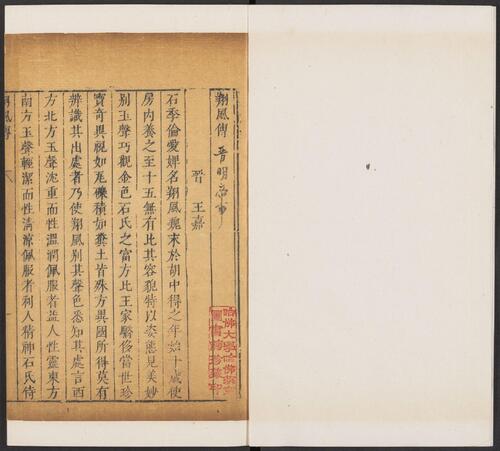 翔風傳
晉 王嘉
石季倫愛婢名翔風魏末於胡中得之年始十歲使
房內養之至十五無有比其容貌特以姿態見美妙
別玉聲巧觀金色石氏之富方比王家驕侈當世珍
寶奇異視如瓦礫積如糞土皆殊方異國所得莫有
辨識其出處者乃使翔風別其聲色悉知其處言西
方北方玉聲沈重而性溫潤佩服者益人性靈東方
南方玉聲輕潔而性清涼佩服者利人精神石氏侍
翔風傳
哈佛大學哈佛燕京
圖書館珍藏印